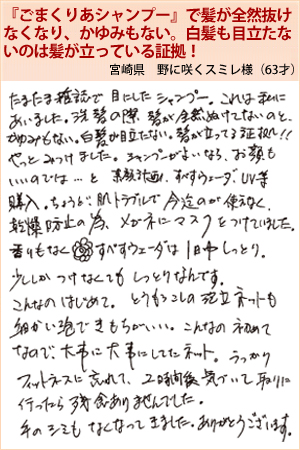 『ごまくりあシャンプー』で髪が全然抜け
なくなり、かゆみもない。白髪も目立たな
いのは髪が立っている証拠！
宮崎県　野に咲くスミレ様（63才）
たまたま雑誌で目にしたシャンプー。これは私に
あいました。洗髪の際 髪が全然ぬけてないのと、
かゆみもない。白髪が目立たない。髪が立ってる証拠!!
やっとみつけました。シャンプーがよいなら、お顔も
いいのでは…と 素数計画、すべすウェーダ、UV等
購入。ちょうど肌トラブルで今迄のが使えなく、
乾燥防止の為、メガネにマスクをつけていました。
香りもなく すべすウェーダは1日中しっとり。
少ししかつけなくてもしっとりなんです。
こんなのはじめて。とうもろこしの泡立ネットも
細かい泡できもちがいい。こんなの初めて
なので、大事に大事にしてたネット。うっかり
フィットネスに忘れて、2時間後気づいて取りに
行ったら残念ありませんでした。
手のシミもなくなってきました。ありがとうございます。